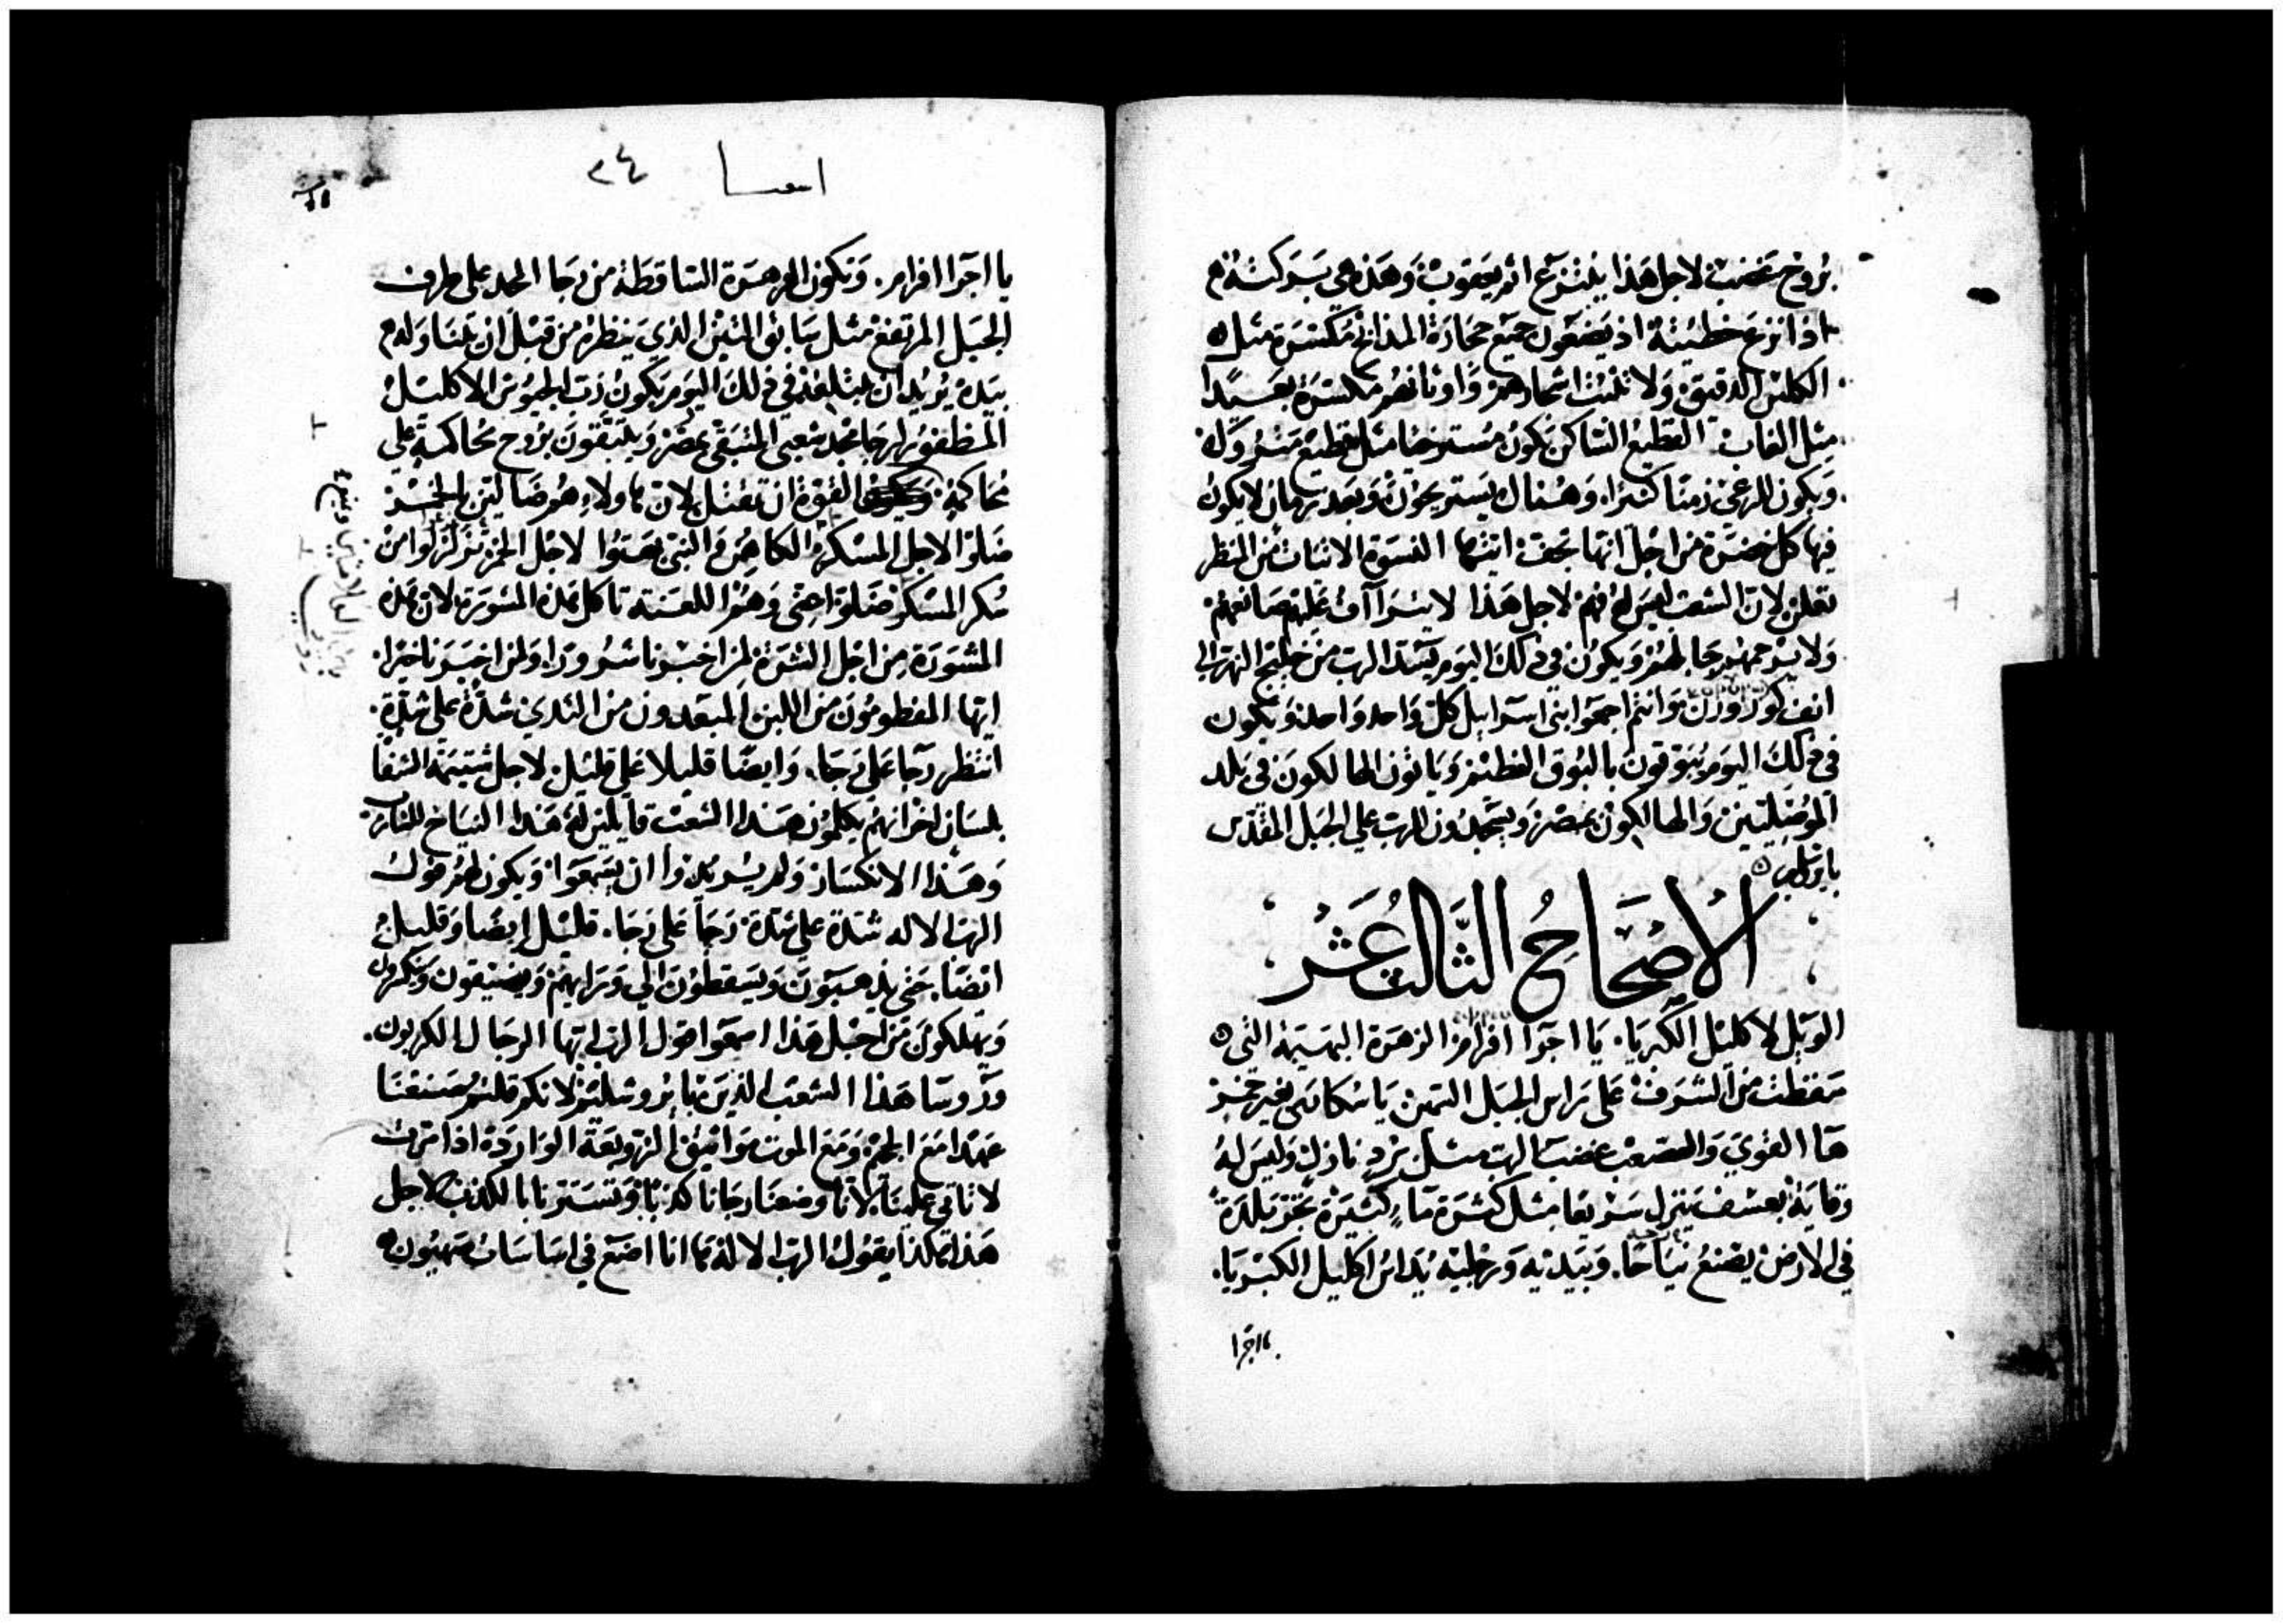 بروح غضب لاجل هذا ينتزع اثم يعقوب وهذه هي بركته
اذا نزع خطيته اذ يضعون جميع حجارة المذابح مكسرة مثل
الكلس الدقيق ولا تلبث اشجارهم واوثانهم مكسرة بعيدا
مثل الغاب القطيع الساكن يكون مسترخيا مثل قطيع متروك
ويكون للرعي زمنا كثيرا وهناك يستريحون وبعد زمان لا يكون
فيها كل خضرة من اجل انها تجف ايتها النسوة الاتيات من المنظر
تعلن لان الشعب ليس له فهم لاجل هذا لا يتراآف عليهم صانعهم
ولا يرحمهم جابلهم ويكون في ذلك اليوم يسد الرب من خليج النهر الى
وانتم اجمعوا بني اسراييل كل واحد واحد ويكون
في ذلك اليوم يبوقون بالبوق العظيم وياتون الهالكون في بلد
الموصليين والهالكون بمصر ويسجدون للرب على الجبل المقدس
بايروشليم
الاصحاح الثالث عشر
الويل لاكليل الكبريا يا اجرا افرام الزهرة البهيمة التي
سقطت من الشرف على راس الجبل السمين يا سكاري بغير خمر
ها القوي والصعب غضب الرب مثل برد نازل وليس له
وقاية بعسف ينزل سريعا مثل كثرة ماء كثيرة تجر بلدة
في الارض يصنع نياحا وبيديه ورجليه يداس اكليل الكبريا
يا اجرا
اسعيا ٢٤
يا اجرا افرام وتكون الزهرة الساقطة من رجا المجد على طرف
الجبل المرتفع مثل سابق التين الذي ينظره من قبل ان يتناوله
بيده يريد ان يبتلعه في ذلك اليوم يكون رب الجيوش الاكليل
المظفور لرجا مجد شعبي المتبقي بمصر ويلبثون بروح محاكمة على
محاكمة القوة ان تقتل لان هاولاء هم ضالين بالخمر
ضلوا لاجل المسكر الكاهن والنبي بهتوا لاجل الخمر تزلزلوا من
سكر المسكر ضلوا حتى وهنوا للعنة تاكل هذه المشورة لان هذه
المشورة من اجل الشره لمن اخبرنا شرورا ولمن اخبرنا خيرا
ايها المفطومون من اللبن المبعدون من الثدي شدة على شدة
انتظر رجا على رجا وايضا قليلا على قليل لاجل شتيمة الشفا
بلسان اخر انهم يكلمون هذا الشعب قايلين له هذا النياح للتاب
وهذا الانكسار ولم يريدوا ان يسمعوا ويكون لهم قول
الرب الاله شدة على شدة رجا على رجا قليل ايضا وقليل
ايضا حتى يذهبون ويسقطون الى ورايهم ويضيقون وينكرون
ويهلكون من اجل هذا اسمعوا قول الرب ايها الرجال الكربون
وروسا هذا الشعب الذين بايروشليم لانكم قلتم صنعنا
عهدا مع الجحيم ومع الموت مواثيق الزوبعة الواردة اذا مرت
لا تاتي علينا لانا وضعنا رجانا كذبا وتسترنا بالكذب لاجل
هذا هكذا يقول الرب الاله ها انا اضع في اساسات صهيون